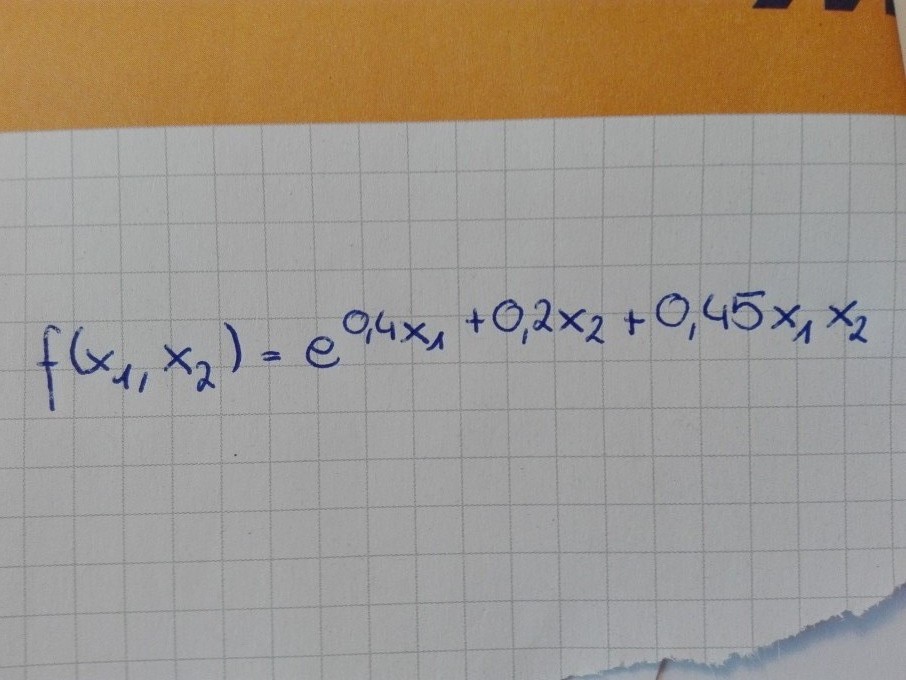 f(x₁, x₂) = e^(0,4x₁ + 0,2x₂ + 0,45x₁x₂)